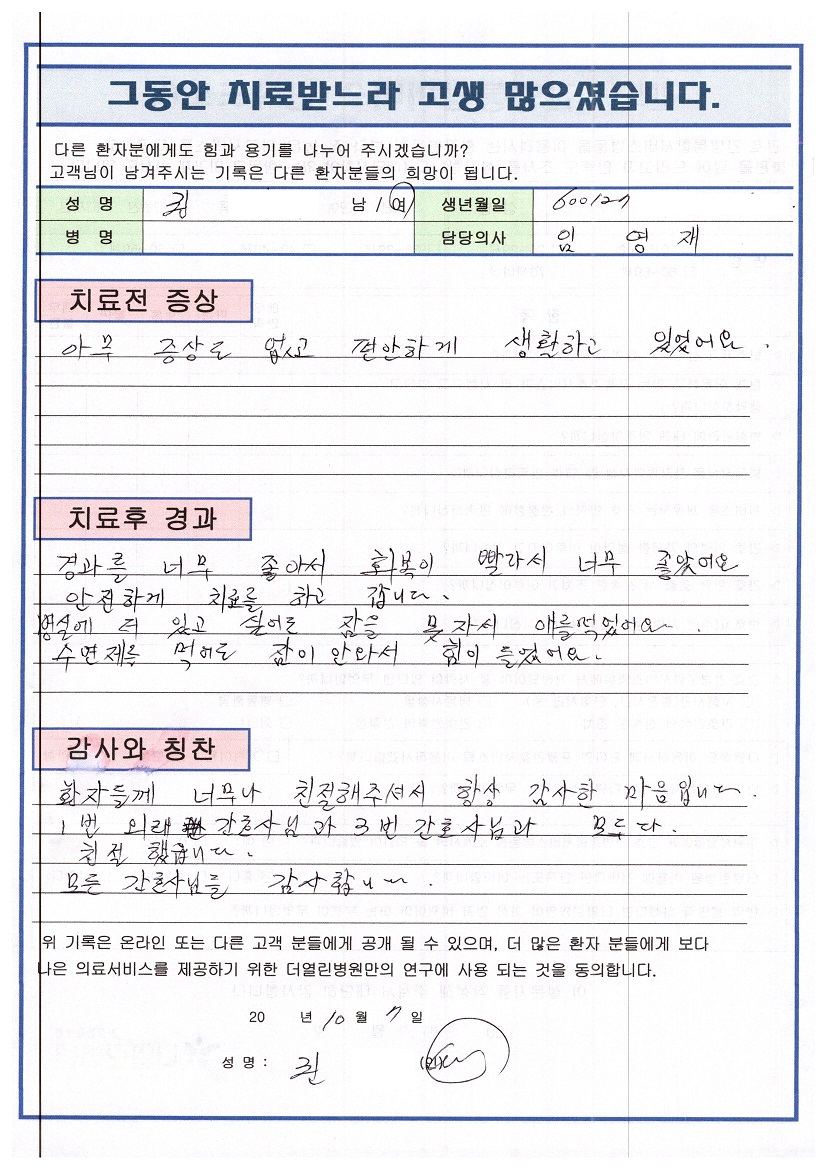 그동안 치료받느라 고생 많으셨습니다.
다른 환자분에게도 힘과 용기를 나누어 주시겠습니까?
고객님이 남겨주시는 기록은 다른 환자분들의 희망이 됩니다.
성 명 남 / 여 생년월일 600127
병 명 담당의사 임 영 재
치료전 증상
아무 증상도 없고 편안하게 생활하고 있었어요.
치료후 경과
경과를 너무 좋아서 회복이 빨라서 너무 좋았어요
안전하게 치료를 하고 갑니다.
병실에 더 있고 싶어도 잠을 못자서 애를먹었어요.
수면제를 먹어도 잠이 안와서 힘이 들었어요.
감사와 칭찬
환자들께 너무나 친절해주셔서 항상 감사한 마음입니다.
1번 외래 간호사님과 3번 간호사님과 모두 다.
친절 했습니다.
모든 간호사님들 감사합니다.
위 기록은 온라인 또는 다른 고객 분들에게 공개 될 수 있으며, 더 많은 환자 분들에게 보다
나은 의료서비스를 제공하기 위한 더열린병원만의 연구에 사용 되는 것을 동의합니다.
20 년 10 월 7 일
성 명 : (인)